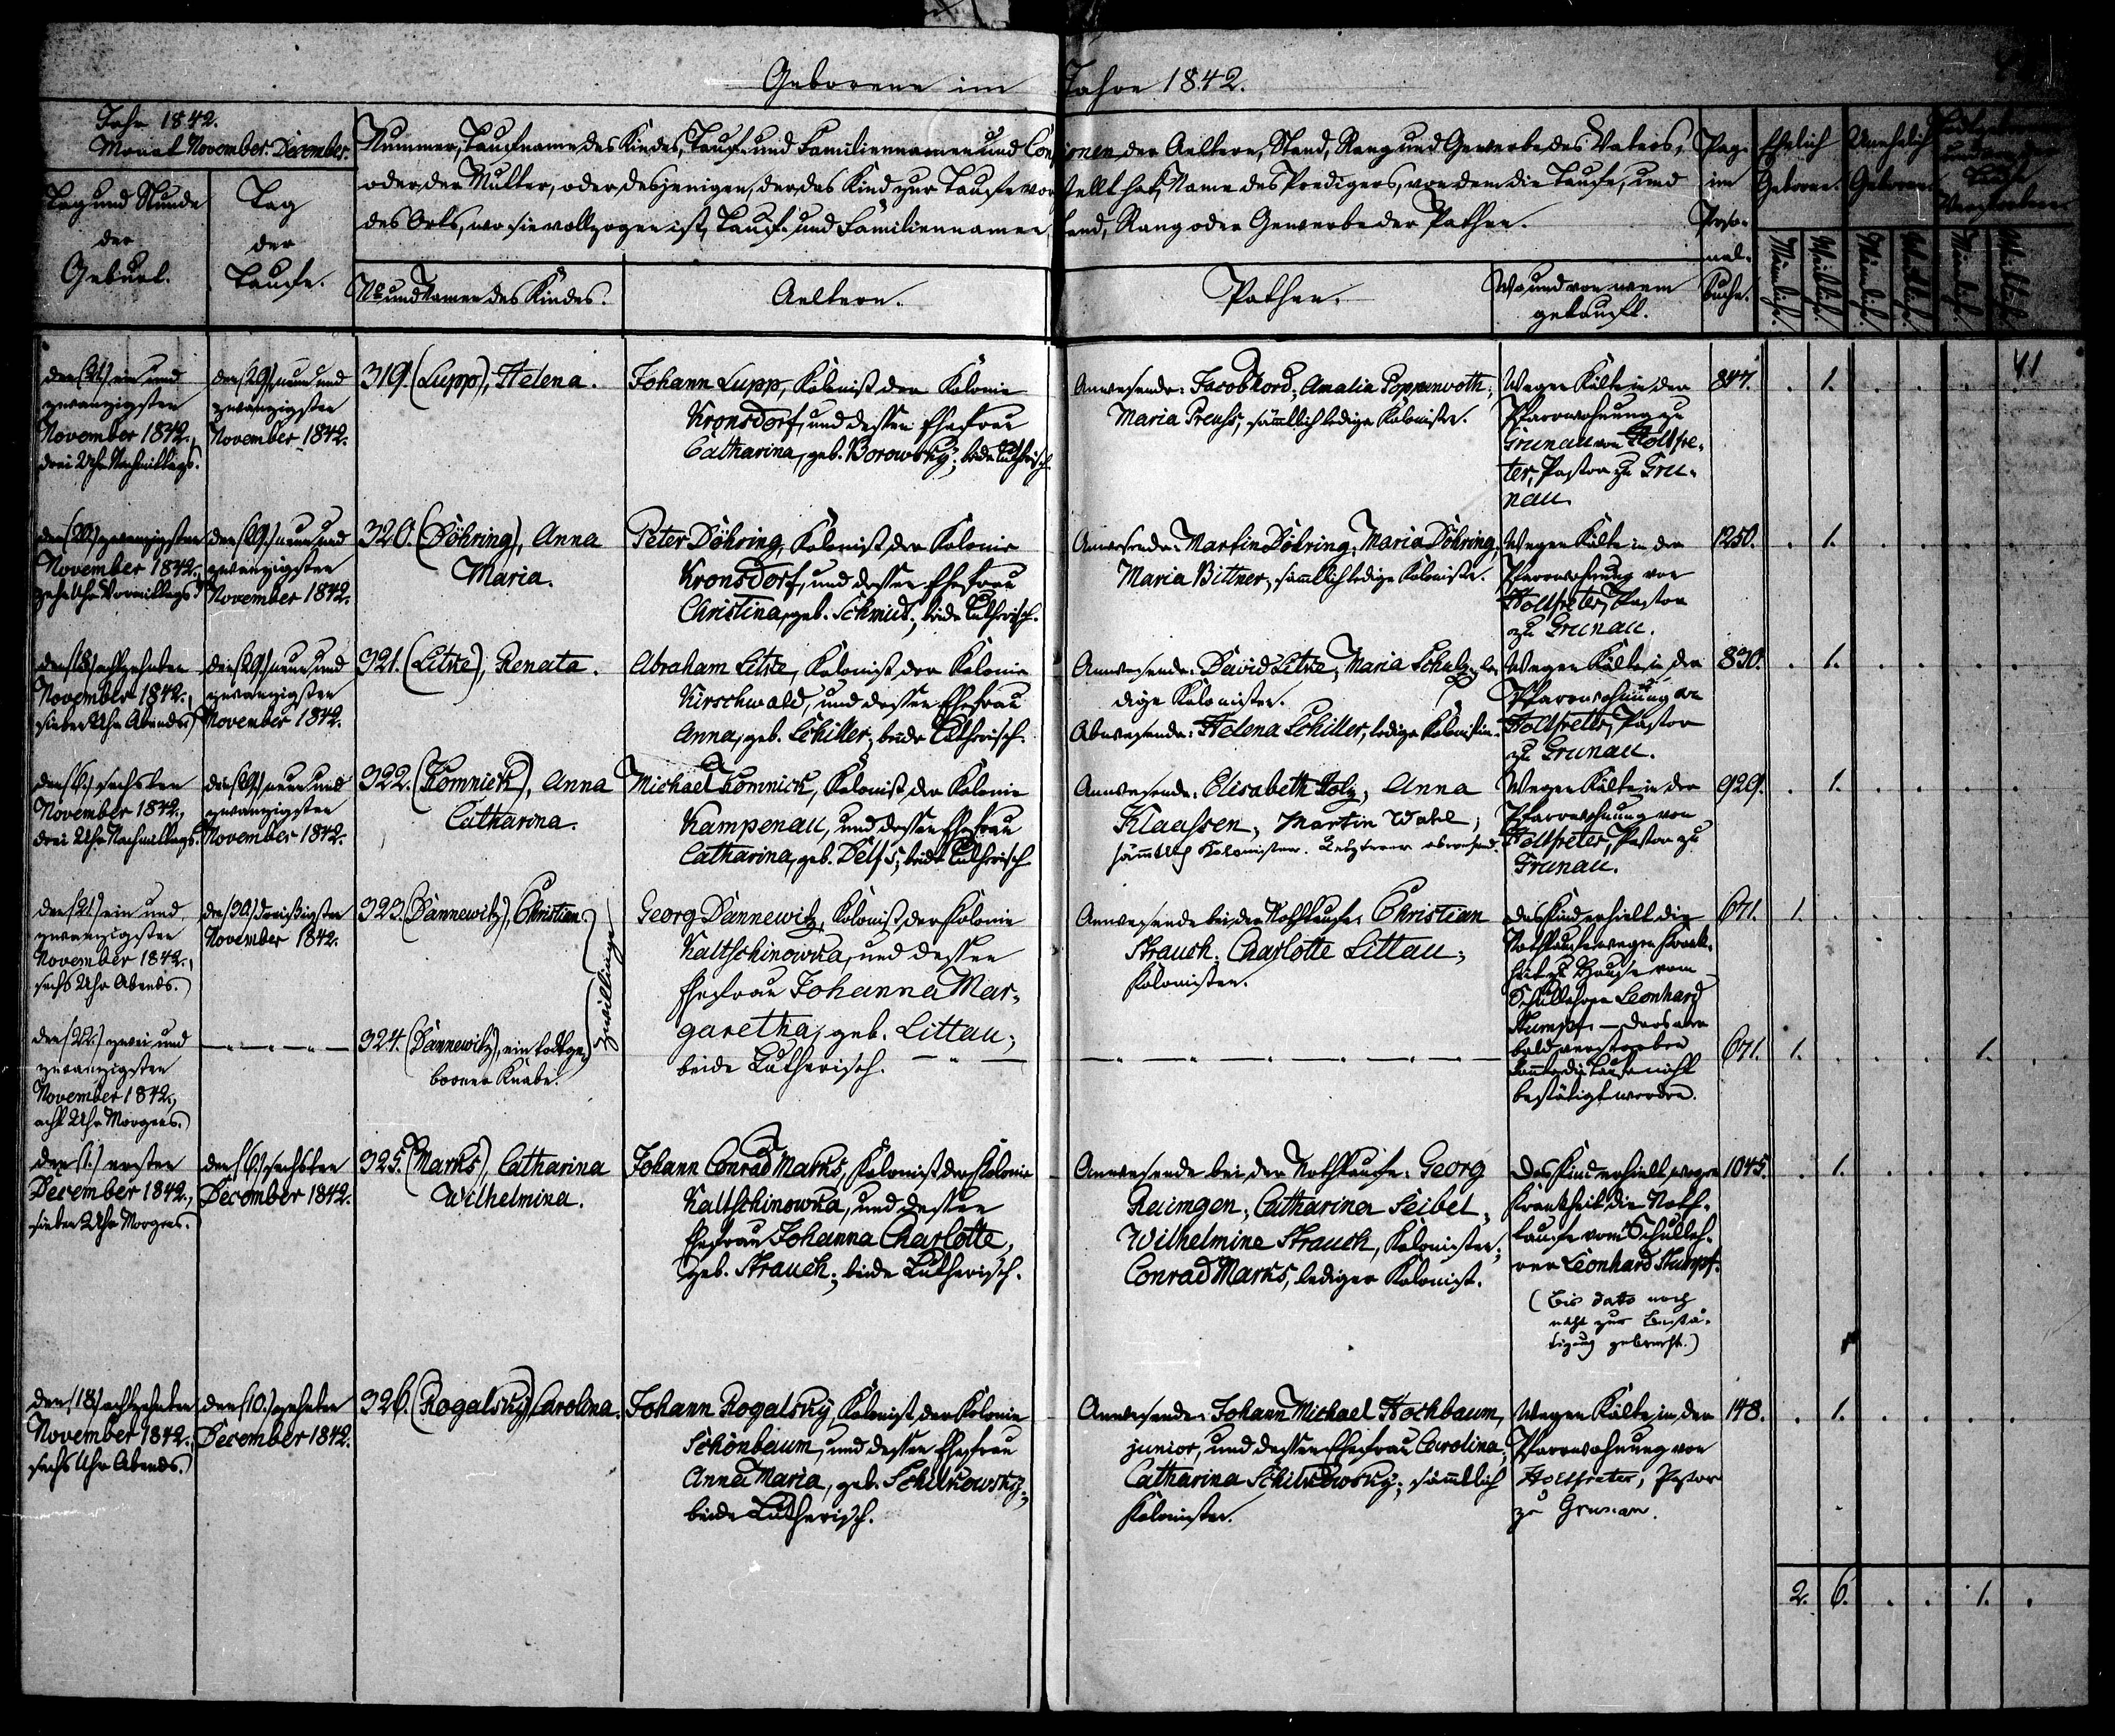 Geborene im Jahre 1842.
Jahr 1842.
Monat November. December.
Tag und Stunde
der
Geburt.
Tag
der
Taufe.
Nummer, Taufname des Kindes, Tauf- und Familiennamen und Confessionen der Aeltern, Stand, Rang und Gewerbe des Vaters,
oder der Mutter, oder desjenigen, der das Kind zur Taufe vorstellt hat, Name des Predigers, von dem die Taufe, und
des Orts, wo sie vollzogen ist, Tauf- und Familiennamen, Stand, Rang oder Gewerbe der Pathen.
No und Namen des Kindes.
Aeltern.
Pathen.
Wo und von wem
getauft.
Pag.
im
Perso-
nal-
Buche.
Ehelich
Geborene.
Unehelich
Geborene.
Taufe
Verstorbene
Männlich.
Weiblich.
Männlich.
Weiblich.
Männlich.
Weiblich.
41
den (21.) ein und
zwanzigsten
November 1842.,
drei Uhr Nachmittags.
den (29.) neun und
zwanzigsten
November 1842.
319. (Lupp), Helena.
Johann Lupp, Kolonist der Kolonie
Kronsdorf, und dessen Ehefrau
Catharina, geb. Borowsky; beide Lutherisch.
Anwesende: Jacob Kord; Amalia Poppenroth;
Maria Preuhs; sämtlich ledige Kolonisten.
Wegen Kälte in der
Pfarrwohnung zu
Grunau von Holtfre-
ter, Pastor zu Gru-
nau.
847. . 1. . . . .
den (20.) zwanzigsten
November 1842.,
zehn Uhr Vormittags.
den (29.) neun und
zwanzigsten
November 1842.
320. (Döhring), Anna
Maria.
Peter Döhring, Kolonist der Kolonie
Kronsdorf, und dessen Ehefrau
Christina, geb. Schmidt; beide Lutherisch.
Anwesende: Martin Döhring; Maria Döhring;
Maria Bittner; sämtlich ledige Kolonisten.
Wegen Kälte in der
Pfarrwohnung von
Holtfreter, Pastor
zu Grunau.
1250. . 1. . . . .
den (18.) achtzehnten
November 1842.,
sieben Uhr Abends.
den (29.) neun und
zwanzigsten
November 1842.
321. (Litke), Renata.
Abraham Litke, Kolonist der Kolonie
Kirschwald, und dessen Ehefrau
Anna, geb. Schiller; beide Lutherisch.
Anwesende: David Litke; Maria Schulz; le-
dige Kolonisten.
Abwesende: Helena Schiller, ledige Kolonistin.
Wegen Kälte in der
Pfarrwohnung von
Holtfreter, Pastor
zu Grunau.
830. . 1. . . . .
den (6.) sechsten
November 1842.,
drei Uhr Nachmittags.
den (29.) neun und
zwanzigsten
November 1842.
322. (Komnick), Anna
Catharina.
Michael Komnick, Kolonist der Kolonie
Kampenau, und dessen Ehefrau
Catharina, geb. Delfs; beide Lutherisch
Anwesende: Elisabeth Holz; Anna
Klaassen; Martin Wahl;
sämmtlich Kolonisten. Letzterer abwesend.
Wegen Kälte in der
Pfarrwohnung von
Holtfreter, Pastor zu
Grunau.
929. . 1. . . . .
den (21.) ein und
zwanzigsten
November 1842.,
sechs Uhr Abends.
den (30.) dreißigsten
November 1842.
323. (Dannewitz), Christian.
Zwillinge
Georg Dannewitz, Kolonist der Kolonie
Kaltschinowka, und dessen
Ehefrau Johanna Mar-
garetha, geb. Littau;
beide Lutherisch.
Anwesende bei der Nothtaufe: Christian
Strauch; Charlotte Littau;
Kolonisten.
Das Kind erhielt die
Nothtaufe wegen Krank-
heit zu Hause vom
Schullehrer Leonhard
Stumpf. — Da es aber
bald verstorben
konnte die Taufe nicht
bestätigt werden.
671. 1. . . . . .
den (22.) zwei und
zwanzigsten
November 1842.,
acht Uhr Morgens.
324. (Dannewitz), ein todtge-
borner Knabe.
671. 1. . . . 1. .
den (1.) ersten
December 1842.,
sieben Uhr Morgens.
den (6.) sechsten
December 1842.
325. (Marks), Catharina
Wilhelmina.
Johann Conrad Marks, Kolonist der Kolonie
Kaltschinowka, und dessen
Ehefrau Johanna Charlotte,
geb. Strauch; beide Lutherisch.
Anwesende bei der Nothtaufe: Georg
Raimgen; Catharina Seibel;
Wilhelmine Strauch, Kolonisten;
Conrad Marks, lediger Kolonist.
Das Kind erhielt wegen
Krankheit die Noth-
taufe vom Schulleh-
rer Leonhard Stumpf.
(Bis dato noch
nicht zur Bestä-
tigung gebracht.)
1045. . 1. . . . .
den (18.) achtzehnten
November 1842.,
sechs Uhr Abends.
den (10.) zehnten
December 1842.
326. (Rogalsky) Carolina.
Johann Rogalsky, Kolonist der Kolonie
Schönbaum, und dessen Ehefrau
Anna Maria, geb. Schilkowsky;
beide Lutherisch.
Anwesende: Johann Michael Hochbaum,
junior, und dessen Ehefrau Carolina;
Catharina Schilkowsky; sämtlich
Kolonisten.
Wegen Kälte in der
Pfarrwohnung von
Holtfreter, Pastor
zu Grunau.
148. . 1. . . . .
2. 6. . . 1. .